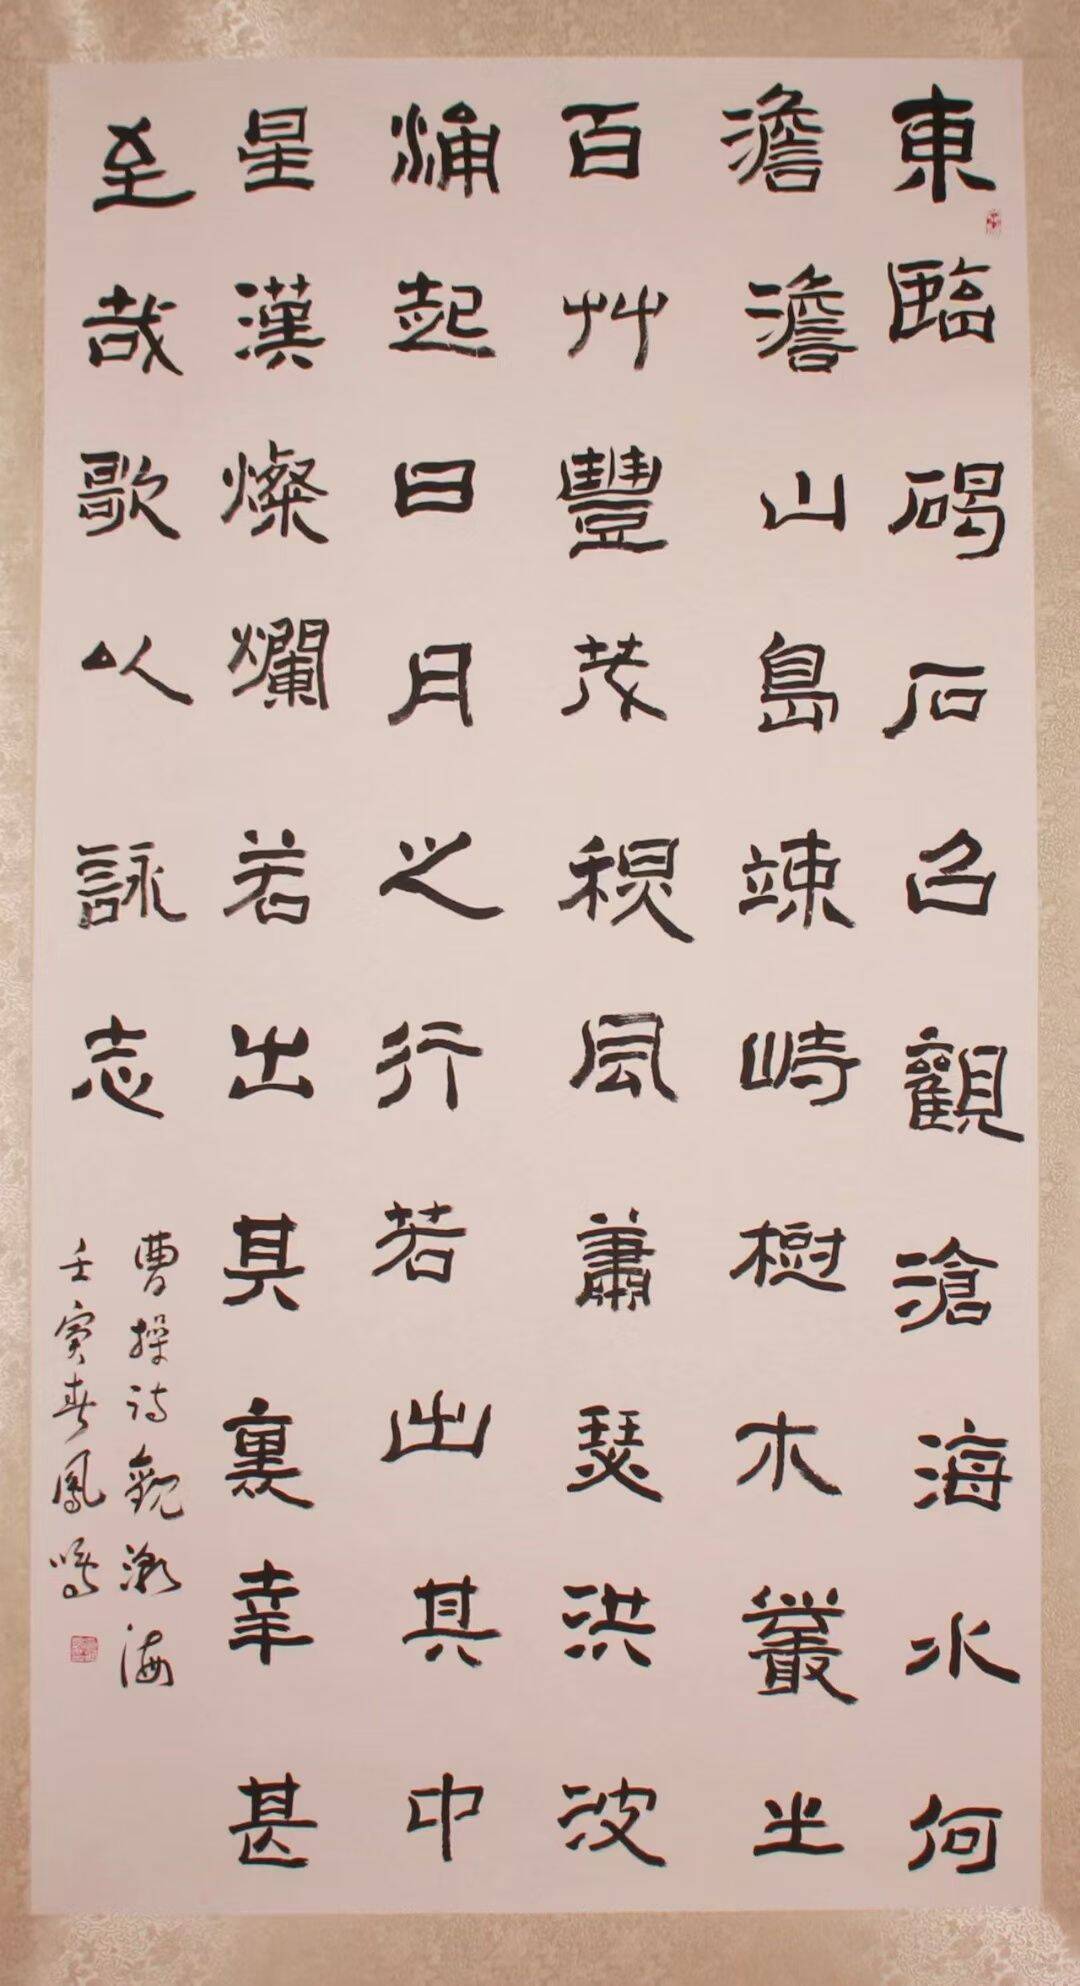 東臨碣石㠯觀滄海水何
澹澹山島竦峙樹木叢生
百艸豐茂秋風蕭瑟洪波
涌起日月之行若出其中
星漢燦爛若出其裏幸甚
至哉歌以詠志
曹操詩觀滄海
壬寅春鳳鳴